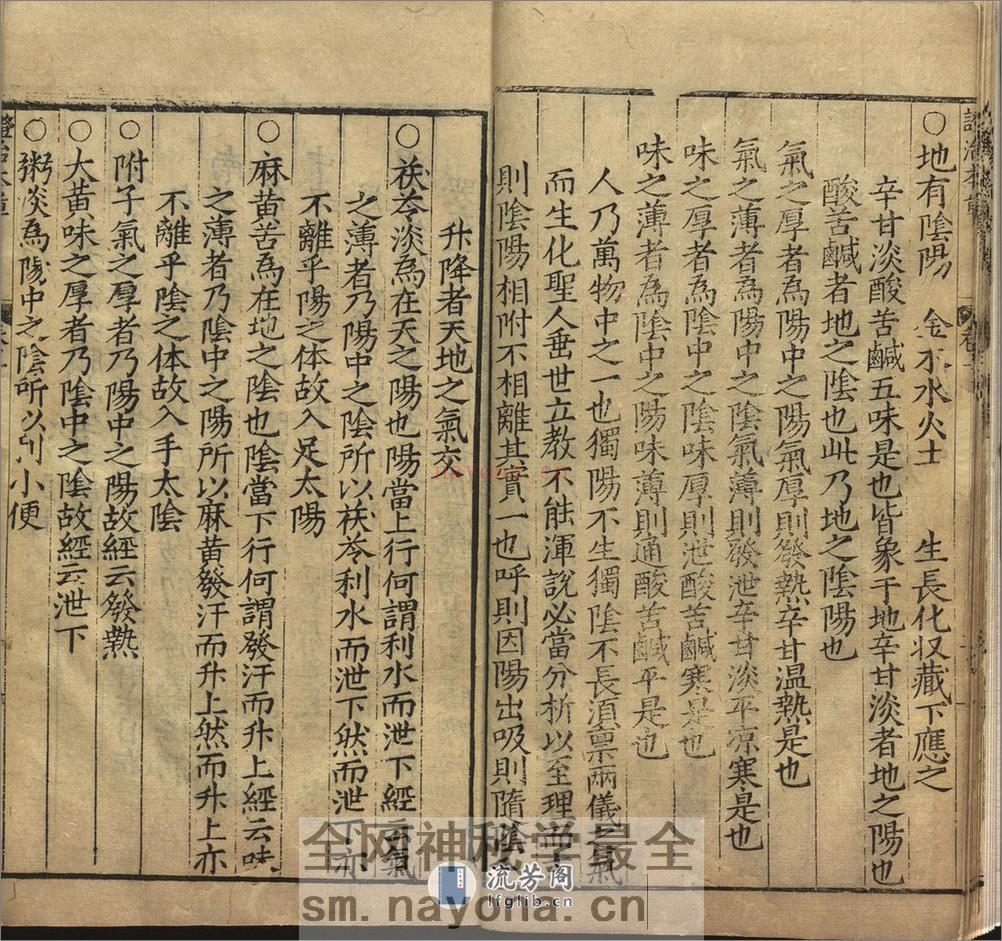 ○地有陰陽 金木水火土 生長化収藏下應之
辛甘淡酸苦鹹五味是也皆象于地辛甘淡者地之陽也
酸苦鹹者地之陰也此乃地之陰陽也
氣之厚者為陽中之陽氣厚則發熱辛甘温熱是也
氣之薄者為陽中之陰氣薄則發泄辛甘淡平凉寒是也
味之厚者為陰中之陰味厚則泄酸苦鹹寒是也
味之薄者為陰中之陽味薄則通酸苦鹹平是也
人乃萬物中之一也獨陽不生獨陰不長湏禀兩儀之氣
而生化聖人垂世立教不能渾說必當分析以至理而
則陰陽相附不相離其實一也呼則因陽出吸則隨陰
升降者天地之氣交
○茯苓淡為在天之陽也陽當上行何謂利水而泄下經云氣
之薄者乃陽中之陰所以茯苓利水而泄下然而泄下亦
不離乎陽之体故入足太陽
○麻黄苦為在地之陰也陰當下行何謂發汗而升上經云味
之薄者乃陰中之陽所以麻黄發汗而升上然而升上亦
不離乎陰之体故入手太陰
○附子氣之厚者乃陽中之陽故經云發熱
○大黄味之厚者乃陰中之陰故經云泄下
○粥淡為陽中之陰所以利小便
nayona.cn
全网神秘学最全
流芳阁
lfglib.cn
sm.nayona.cn